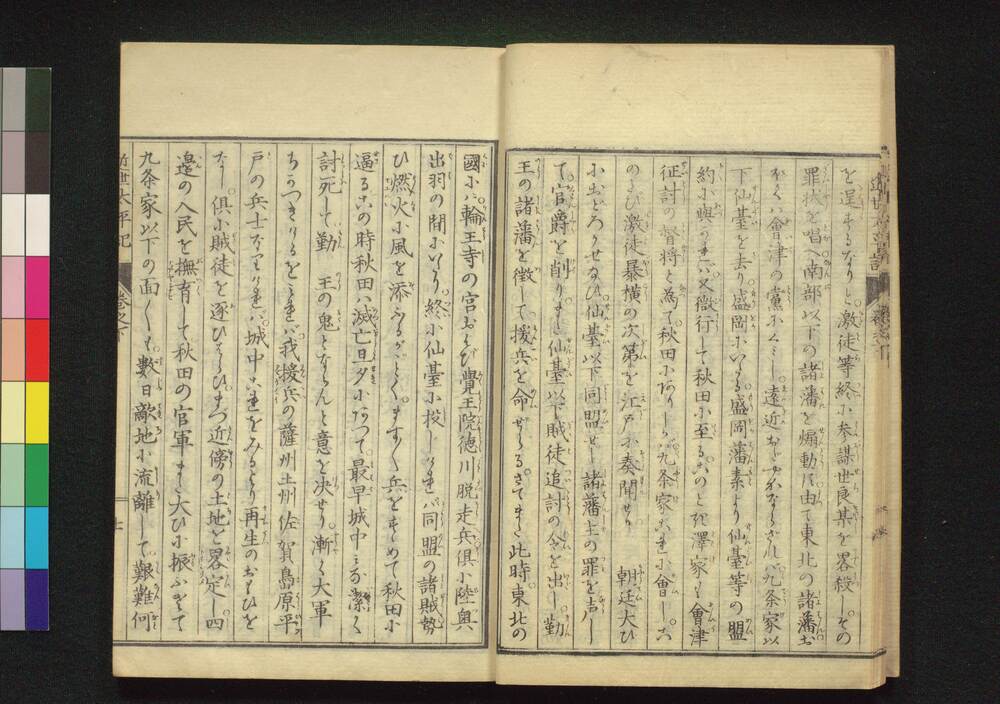 を逞するなりと。激徒等終に参謀世良某を畧殺し。その
罪状を唱へ南部以下の諸藩を煽動に由て東北の諸藩お
ほくハ會津の黨にくミし。遠近おだやかならざれバ九条家以
下仙臺を去り。盛岡にいたる盛岡藩素より仙臺等の盟
約に與かれバ又微行して秋田に至るこのとき澤家も會津
征討の督将と為て秋田にありしが。九条家これに會し。
のよび激徒暴横の次第を江戸に奏聞せり 朝廷大ひ
におどろかせ給ひ仙臺以下同盟せし諸藩主の罪を声し
て官爵を削りまた仙臺以下賊徒追討の令を出し勤
王の諸藩を徴して援兵を命せらるさてまた此時東北の
國にハ輪王寺の宮および覺王院徳川脱走兵俱に陸奥
出羽の間にいたり。終に仙臺に投じけれバ同盟の諸賊勢
ひ燃火に風を添ふるがごとく。ますます兵をすゝめて秋田に
逼るこの時秋田ハ滅亡旦夕にありて。最早城中ミな潔く
討死して勤 王の鬼とならんと意を決せり。漸く大軍
ちかづきけるをこれバ我援兵の薩州土州佐賀島原平
戸の兵士なりけれバ。城中これをみるより再生のおもひを
なし。俱に賊徒を逐ひはらひ。まづ近傍の土地を畧定し。四
邉の人民を撫育して秋田の官軍また大ひに振ふさて
九条家以下の面々も。數日敵地に流離して。艱難何
近世太平記 巻之下